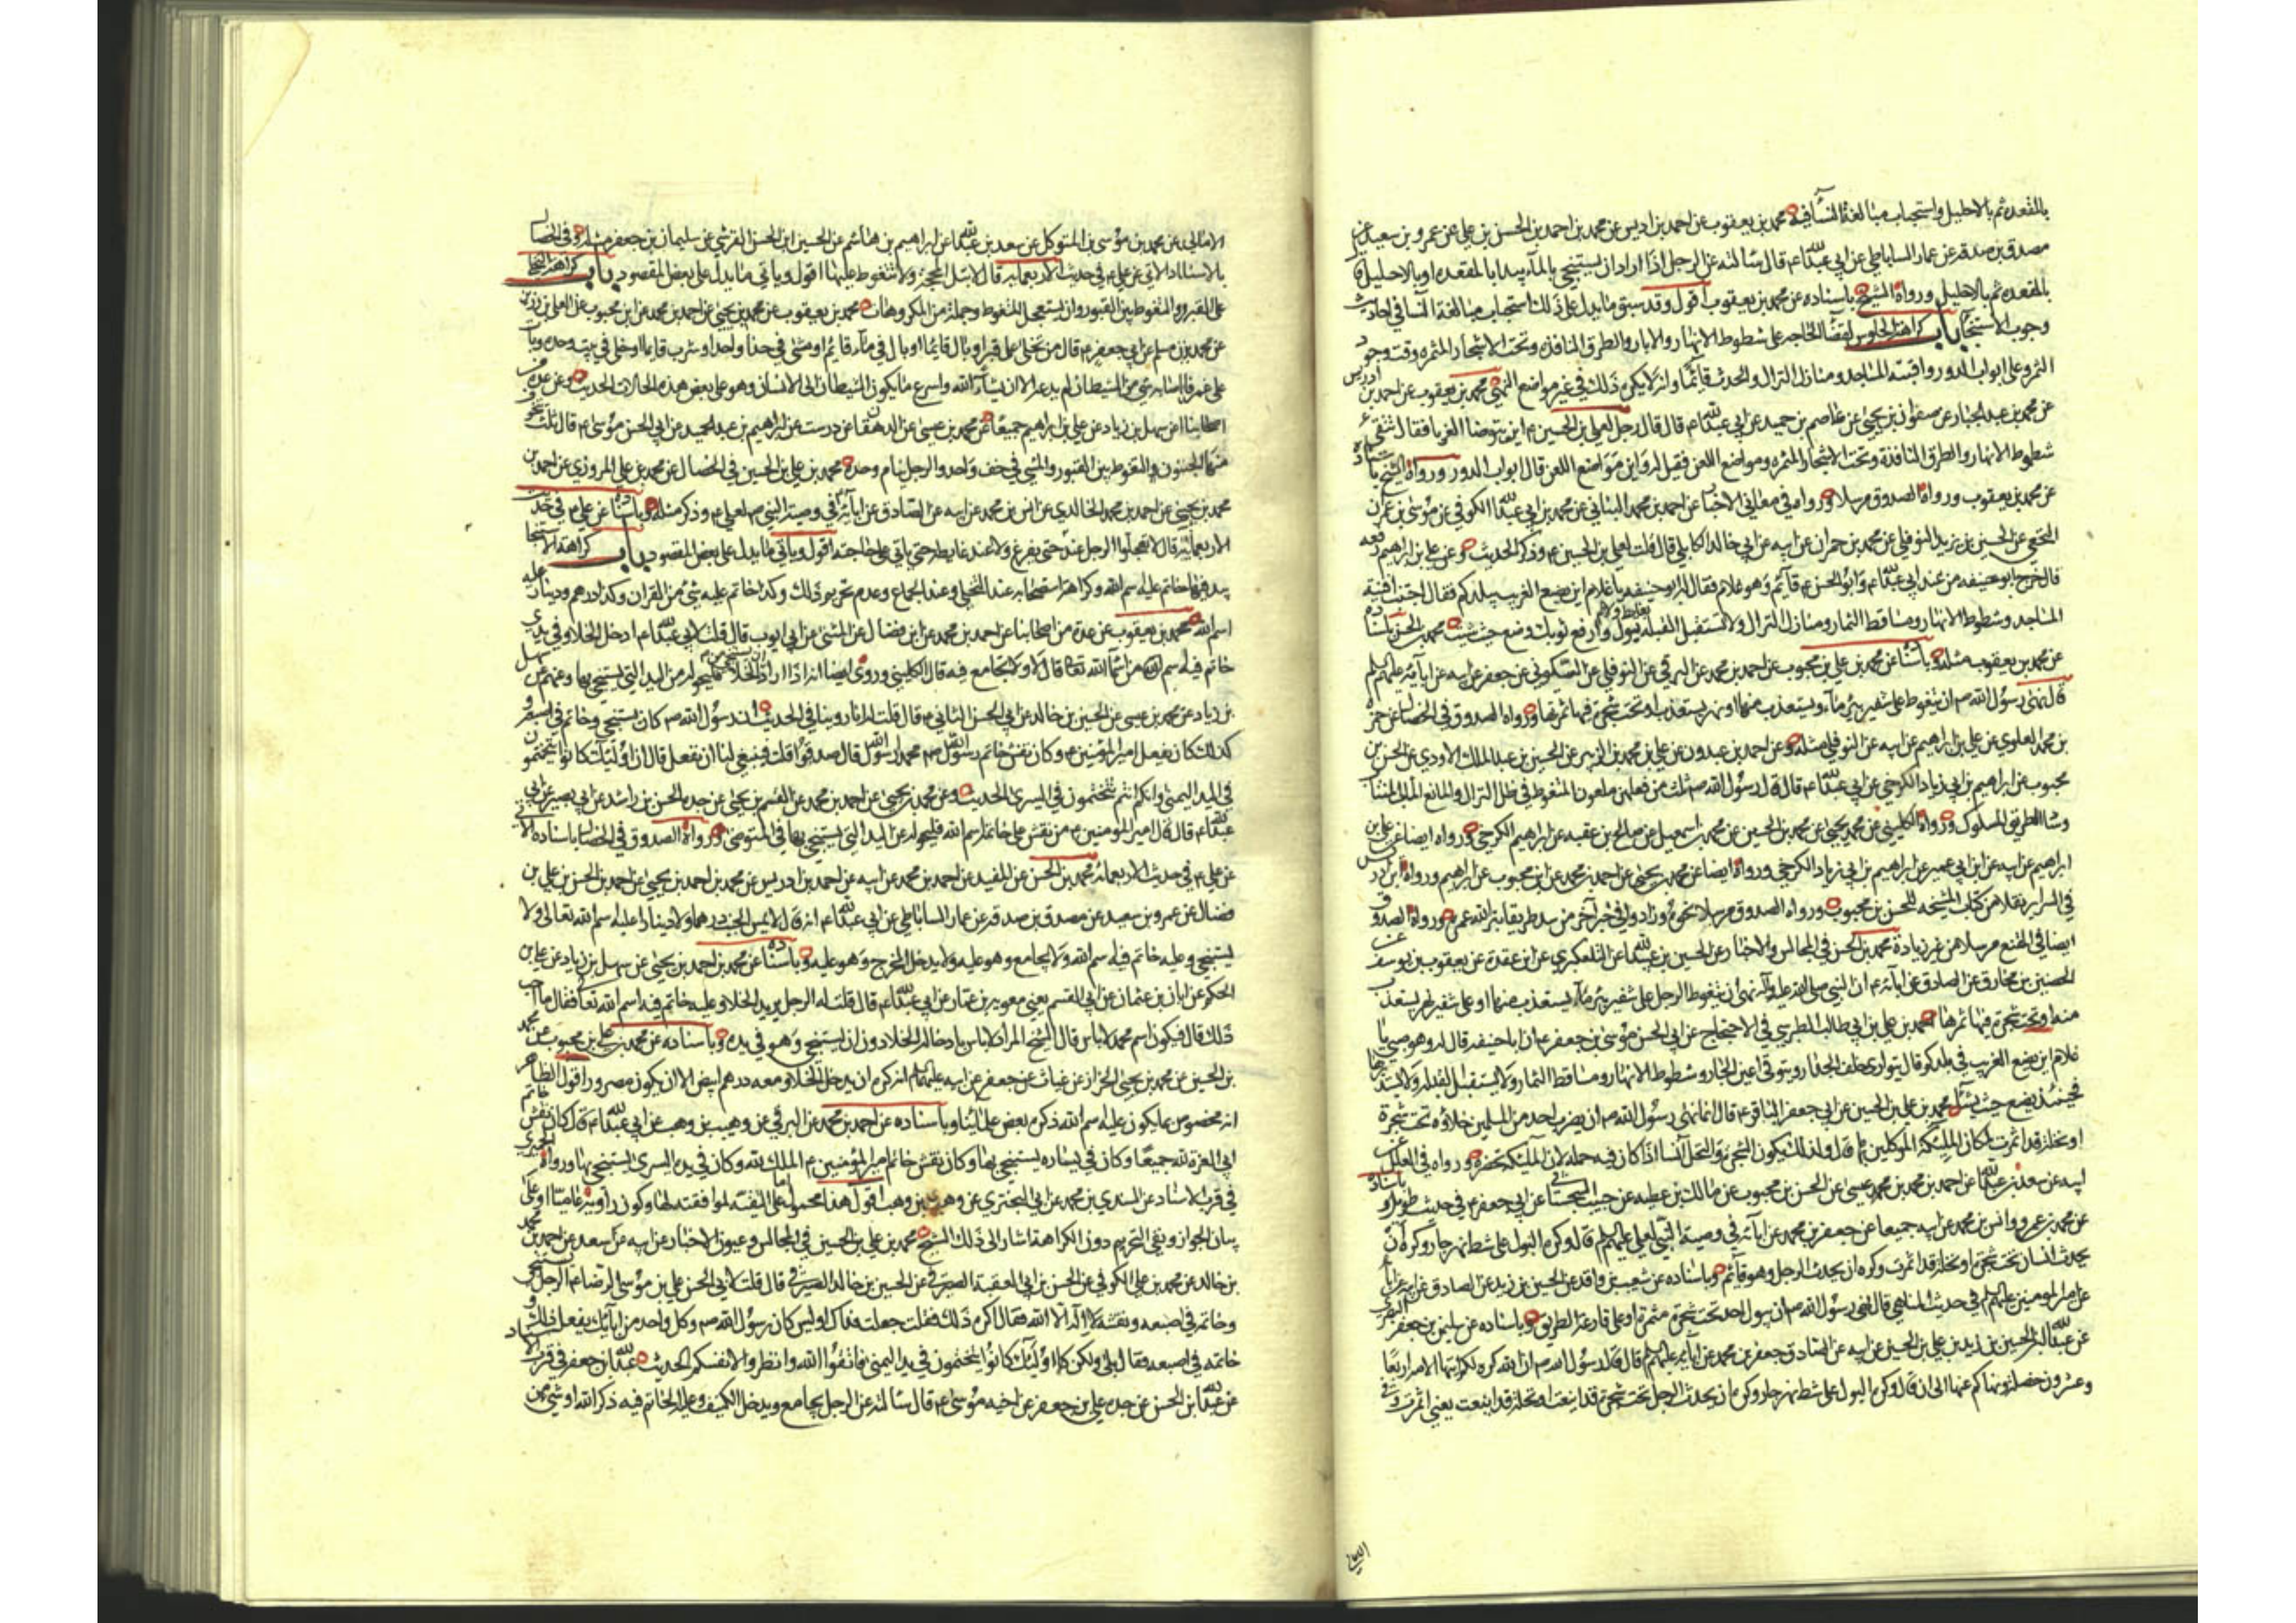 بالمقعدة ثم بالاحليل واستحباب مبالغة النساء فيه محمد بن يعقوب عن احمد بن ادريس عن محمد بن احمد عن احمد بن الحسن بن علي عن عمرو بن سعيد عن
مصدق بن صدقه عن عمار الساباطي عن ابي عبدالله ع قال سألته عن الرجل اذا اراد ان يستنجي بالماء يبدأ بالمقعدة او بالاحليل
بالمقعدة ثم بالاحليل ورواه الشيخ باسناده عن محمد بن يعقوب اقول وقد سبق ما يدل على ذلك استحباب مبالغة النسا في احاديث
وجوب الاستنجاء باب كراهة الجلوس لقضاء الحاجه على شطوط الانهار والابار والطرق النافذه وتحت الاشجار المثمره وقت وجود
الثمر وعلى ابواب الدور وافنية المساجد ومنازل النزال والحدث قائما وانه لا يكره ذلك في غير مواضع النهي محمد بن يعقوب عن احمد بن ادريس
عن محمد بن عبد الجبار عن صفوان بن يحيى عن عاصم بن حميد عن ابي عبدالله ع قال قال رجل لعلي بن الحسين ع اين يتوضا الغربا فقال تتقى
شطوط الانهار والطرق النافذة وتحت الاشجار المثمره ومواضع اللعن فقيل له واين مواضع اللعن قال ابواب الدور ورواه الشيخ باسناده
عن محمد بن يعقوب ورواه الصدوق مرسلا ورواه في معاني الاخبار عن احمد بن محمد السناني عن محمد بن ابي عبدالله الكوفي عن موسى بن عمران
النخعي عن الحسين بن يزيد النوفلي عن محمد بن حمران عن ابيه عن ابي خالد الكابلي قال قلت لعلي بن الحسين ع وذكر الحديث وعن علي بن ابراهيم رفعه
قال خرج ابو حنيفه من عند ابي عبدالله ع وابو الحسن ع قائم وهو غلام فقال له ابو حنيفه يا غلام اين يضع الغريب ببلدكم فقال اجتنب افنية
المساجد وشطوط الانهار ومساقط الثمار ومنازل النزال ولا تستقبل القبلة بغايط ولا بول وارفع ثوبك وضع حيث شئت محمد بن الحسن باسناده
عن محمد بن يعقوب مثله وباسناده عن محمد بن علي بن محبوب عن احمد بن محمد عن البرقي عن النوفلي عن السكوني عن جعفر عن ابيه عن ابائه عليهم السلم
قال نهى رسول الله ص ان يتغوط على شفير بئر ماء يستعذب منها او نهر يستعذب او تحت شجرة فيها ثمرتها ورواه الصدوق في الخصال عن حمزه
بن محمد العلوي عن علي بن ابراهيم عن ابيه عن النوفلي مثله وعن احمد بن عبدون عن علي بن محمد بن الزبير عن الحسين بن عبد الملك الاودي عن الحسن بن
محبوب عن ابراهيم بن ابي زياد الكرخي عن ابي عبدالله ع قال قال رسول الله ص ثلث من فعلهن ملعون المتغوط في ظل النزال والمانع الماء المنتاب
وساد الطريق المسلوك ورواه الكليني عن محمد بن يحيى عن محمد بن الحسين عن محمد بن اسمعيل عن صالح بن عقبه عن ابراهيم الكرخي ورواه ايضا عن علي بن
ابراهيم عن ابيه عن ابن ابي عمير عن ابراهيم بن ابي زياد الكرخي ورواه ايضا عن محمد بن يحيى عن احمد بن محمد عن ابن محبوب عن ابراهيم ورواه ابن ادريس
في السراير نقلا من كتاب المشيخه للحسن بن محبوب ورواه الصدوق مرسلا نحوه وزاد وفي خبر آخر من سد طريقا بتر الله عمره ورواه الصدوق
ايضا في المقنع مرسلا من غير زيادة محمد بن الحسن في المجالس والاخبار عن الحسين بن عبيدالله عن التلعكبري عن ابن عقدة عن يعقوب بن يوسف عن
الحصين بن مخارق عن الصادق عن ابائه ع ان النبي صلى الله عليه وآله نهى ان يتغوط الرجل على شفير بئر ماء يستعذب منها او على شفير نهر يستعذب
منه او تحت شجرة فيها ثمرها احمد بن علي بن ابي طالب الطبرسي في الاحتجاج عن ابي الحسن موسى بن جعفر ع ان ابا حنيفه قال له وهو صبي يا
غلام اين يضع الغريب في بلدكم قال يتوارى خلف الجدار ويتوقى اعين الجار وشطوط الانهار ومساقط الثمار ولا يستقبل القبلة ولا يستدبرها
فحينئذ يضع حيث يشاء محمد بن علي بن الحسين عن ابي جعفر الباقر ع قال انما نهى رسول الله ص ان يضرب احد من المسلمين خلاؤه تحت شجرة
او نخلة قد اثمرت لمكان الملئكة الموكلين بها قال ولذلك يكون الشجرة والنخل انسا اذا كان فيه حمله لان الملئكة تحضره ورواه في العلل عن
ابيه عن سعد بن عبدالله عن احمد بن محمد بن عيسى عن الحسن بن محبوب عن مالك بن عطيه عن حبيب السجستاني عن ابي جعفر ع في حديث طويل وباسناده
عن محمد بن عمرو وانس بن محمد عن ابيه جميعا عن جعفر بن محمد عن ابائه في وصية النبي لعلي عليهم السلم قال وكره البول على شط نهر جار وكره ان
يحدث انسان تحت شجرة او نخلة قد اثمرت وكره ان يحدث الرجل وهو قائم وباسناده عن شعيب بن واقد عن الحسين بن زيد عن الصادق عن ابائه
عن امير المومنين عليهم السلم في حديث المناهي قال نهى رسول الله ص ان يبول احد تحت شجرة مثمرة او على قارعة الطريق وباسناده عن سليمن بن جعفر البصري
عن عبدالله بن الحسين بن زيد بن علي بن الحسين عن ابيه عن الصادق جعفر بن محمد عن ابائه عليهم السلم قال قال رسول الله ص ان الله كره لكم ايتها الامة اربعا
وعشرون خصلة ونهاكم عنها الى ان قال وكره البول على شط نهر جار وكره ان يحدث الرجل تحت شجرة قد اينعت او نخلة قد اينعت يعني اثمرت وفي
الامالي
الامالي عن محمد بن موسى بن المتوكل عن سعد بن عبدالله عن ابراهيم بن هاشم عن الحسين ابن الحسن القرشي عن سليمان بن جعفر مثله وفي الخصال
بالاسناد الاتي عن علي ع في حديث الاربعمائه قال لا تبل على المحجة ولا تتغوط عليها اقول وياتي ما يدل على بعض المقصود باب كراهة التخلي
على القبر والتغوط بين القبور وان يستعجل المتغوط وجملة من المكروهات محمد بن يعقوب عن محمد بن يحيى عن احمد بن محمد عن ابن محبوب عن العلاء بن رزين
عن محمد بن مسلم عن ابي جعفر ع قال من تخلى على قبر او بال قائما او بال في ماء قائم او مشى في حذاء واحد او شرب قايما او خلى في بيت وحده وبات
على غمر فاصابه شيء من الشيطان لم يدعه الا ان يشاء الله واسرع ما يكون الشيطان الى الانسان وهو على بعض هذه الحالات الحديث وعن عدة من
اصحابنا عن سهل بن زياد عن علي بن ابراهيم جميعا عن محمد بن عيسى عن الدهقان عن درست عن ابراهيم بن عبد الحميد عن ابي الحسن موسى ع قال ثلث يتخوف
منها الجنون والتغوط بين القبور والمشي في خف واحد والرجل ينام وحده محمد بن علي بن الحسين في الخصال عن محمد بن علي المروزي عن احمد بن
محمد بن يحيى عن احمد بن محمد الخالدي عن انس بن محمد عن ابيه عن الصادق عن ابائه في وصية النبي ص لعلي ع وذكر مثله وباسناده عن علي ع في حديث
الاربعمائة قال لا تعجلوا الرجل عند طعامه حتى يفرغ ولا عند غايطه حتى ياتي على حاجته اقول وياتي ما يدل على بعض المقصود باب كراهة الاستنجاء
بيد فيها خاتم عليه اسم الله وكراهة استصحابه عند التخلي وعند الجماع وعدم تحريم ذلك وكذا خاتم عليه شيء من القران وكذا درهم ودينار عليه
اسم الله محمد بن يعقوب عن عدة من اصحابنا عن احمد بن محمد عن ابن فضال عن المثنى عن ابي ايوب قال قلت لابي عبدالله ع ادخل الخلاء وفي يدي
خاتم فيه اسم من اسماء الله تعالى قال لا ولا تجامع فيه قال الكليني وروي ايضا انه اذا اراد ان يستنجي من الخلاء فليحوله من اليد التي يستنجي بها وعنهم عن سهل
بن زياد عن محمد بن عيسى عن الحسين بن خالد عن ابي الحسن الثاني ع قال قلت له انا روينا في الحديث ان رسول الله ص كان يستنجي وخاتمه في اصبعه و
كذلك كان يفعل امير المومنين ع وكان نقش خاتم رسول الله ص محمد رسول الله قال صدقوا قلت فينبغي لنا ان نفعل قال ان اولئك كانوا يتختمون
في اليد اليمنى وانكم انتم تتختمون في اليسرى الحديث وعن محمد بن يحيى عن احمد بن محمد عن القسم بن يحيى عن جده الحسن بن راشد عن ابي بصير عن ابي
عبدالله ع قال قال امير المومنين ع من نقش على خاتمه اسم الله فليحوله عن اليد التي يستنجي بها في المتوضى ورواه الصدوق في الخصال باسناده الاتي
عن علي ع في حديث الاربعمائة محمد بن الحسن عن المفيد عن احمد بن محمد عن ابيه عن احمد بن ادريس عن محمد بن احمد بن يحيى عن احمد بن الحسن بن علي بن
فضال عن عمرو بن سعيد عن مصدق بن صدقه عن عمار الساباطي عن ابي عبدالله ع انه قال لا يمس الجنب درهما ولا دينارا عليه اسم الله تعالى ولا
يستنجي وعليه خاتم فيه اسم الله ولا يجامع وهو عليه ولا يدخل المخرج وهو عليه وباسناده عن محمد بن احمد بن يحيى عن سهل بن زياد عن علي بن
الحكم عن ابان بن عثمان عن ابي القسم يعني معويه بن عمار عن ابي عبدالله ع قال قلت له الرجل يريد الخلاء وعليه خاتم فيه اسم الله تعالى فقال ما احب
ذلك قال فيكون اسم محمد ص قال لا باس قال الشيخ المراد لا باس بادخاله الخلاء دون ان يستنجي وهو في يده وباسناده عن محمد بن علي بن محبوب عن محمد
بن الحسين عن محمد بن يحيى الخزاز عن غياث عن جعفر عن ابيه عليهما السلم انه كره ان يدخل الخلاء ومعه درهم ابيض الا ان يكون مصرورا اقول الظاهر
انه مخصوص بما يكون عليه اسم الله ذكره بعض علمائنا وباسناده عن احمد بن محمد عن البرقي عن وهب بن وهب عن ابي عبدالله ع قال كان نقش خاتم
ابي العزة لله جميعا وكان في يساره يستنجي بها وكان نقش خاتم امير المؤمنين ع الملك لله وكان في يده اليسرى يستنجي بها ورواه الحميري
في قرب الاسناد عن السندي بن محمد عن ابي البختري عن وهب بن وهب اقول هذا محمول اما على التقية لموافقته لها وكون راويه عاميا او على
بيان الجواز ونفي التحريم دون الكراهة اشار الى ذلك الشيخ محمد بن علي بن الحسين في المجالس وعيون الاخبار عن ابيه عن سعد عن احمد بن محمد
بن خالد عن محمد بن علي الكوفي عن الحسن بن ابي العقبة الصيرفي عن الحسين بن خالد الصيرفي قال قلت لابي الحسن علي بن موسى الرضا ع الرجل يستنجي
وخاتمه في اصبعه ونقشه لا اله الا الله فقال اكره ذلك فقلت جعلت فداك اوليس كان رسول الله ص وكل واحد من ابائك يفعل ذلك و
خاتمه في اصبعه فقال بلى ولكن اولئك كانوا يتختمون في يد اليمنى فاتقوا الله وانظروا لانفسكم الحديث عبدالله بن جعفر في قرب الاسناد
عن عبدالله بن الحسن عن جده علي بن جعفر عن اخيه موسى ع قال سالته عن الرجل يجامع ويدخل الكنيف وعليه الخاتم فيه ذكر الله او شيء من